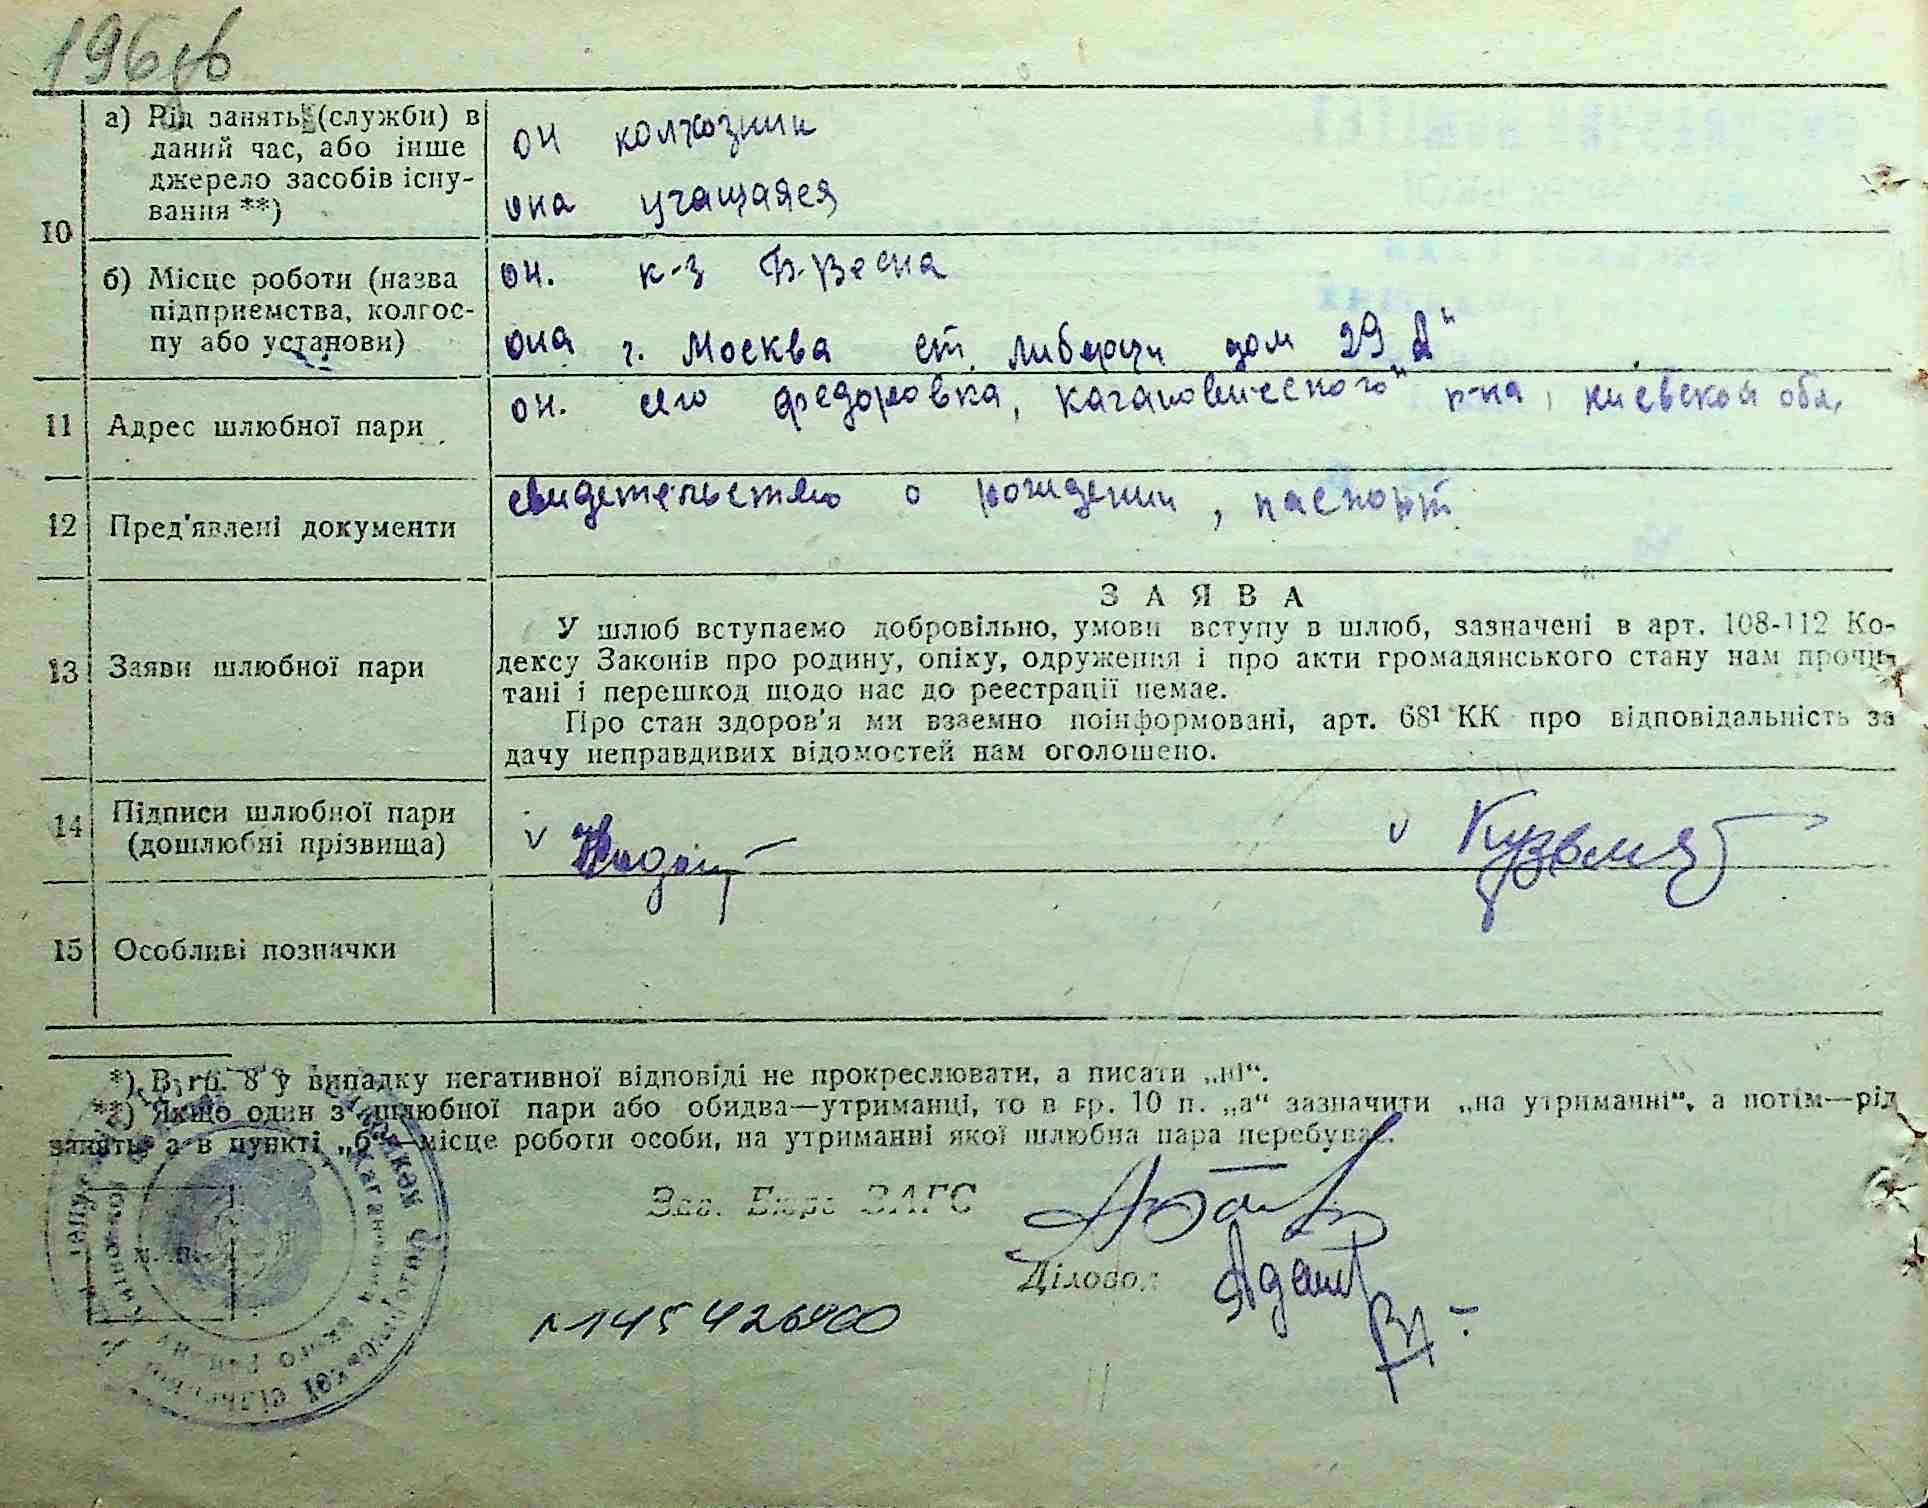 196зв
а) Рід занять (служби) в
даний час, або інше
джерело засобів існу-
вання **)
он колхозник
она учащаяся
10
б) Місце роботи (назва
підприемства, колгос-
пу або установи)
он. к-з Б-Весна
она г. Москва ст. Люберци дом 29 „А“
11 Адрес шлюбної пари
он. село Федоровка, Кагановического р-на, Киевской обл.
12 Пред'явлені документи
свидетельство о рождении, паспорт.
13 Заяви шлюбної пари
ЗАЯВА
У шлюб вступаемо добровільно, умови вступу в шлюб, зазначені в арт. 108-112 Ко-
дексу Законів про родину, опіку, одруження і про акти громадянського стану нам прочи-
тані і перешкод щодо нас до реестрації немае.
Про стан здоров'я ми взаемно поінформовані, арт. 68¹ КК про відповідальність за
дачу неправдивих відомостей нам оголошено.
14 Підписи шлюбної пари
(дошлюбні прізвища)
v v
15 Особливі позначки
*) В гр. 8 у випадку негативної відповіді не прокреслювати, а писати „ні“.
**) Якщо один з шлюбної пари або обидва—утриманці, то в гр. 10 п. „а“ зазначити „на утриманні“, а потім—рід
занять, а в пункті „б“—місце роботи особи, на утриманні якої шлюбна пара перебувае.
Зав. Бюро ЗАГС
М. П.
Діловод: